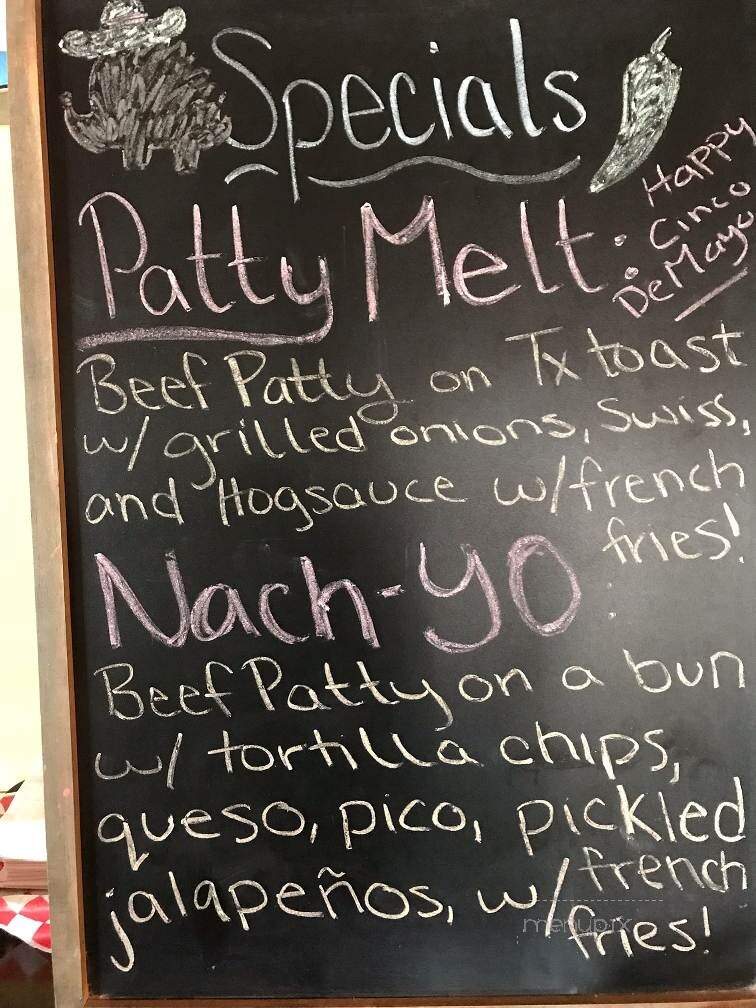 Specials
Happy
Cinco
De Mayo
Patty Melt:
Beef Patty on Tx toast
w/ grilled onions, Swiss,
and Hogsauce w/french
fries!
Nach-YO:
Beef Patty on a bun
w/ tortilla chips,
queso, pico, pickled
jalapeños, w/french
fries!
menupix